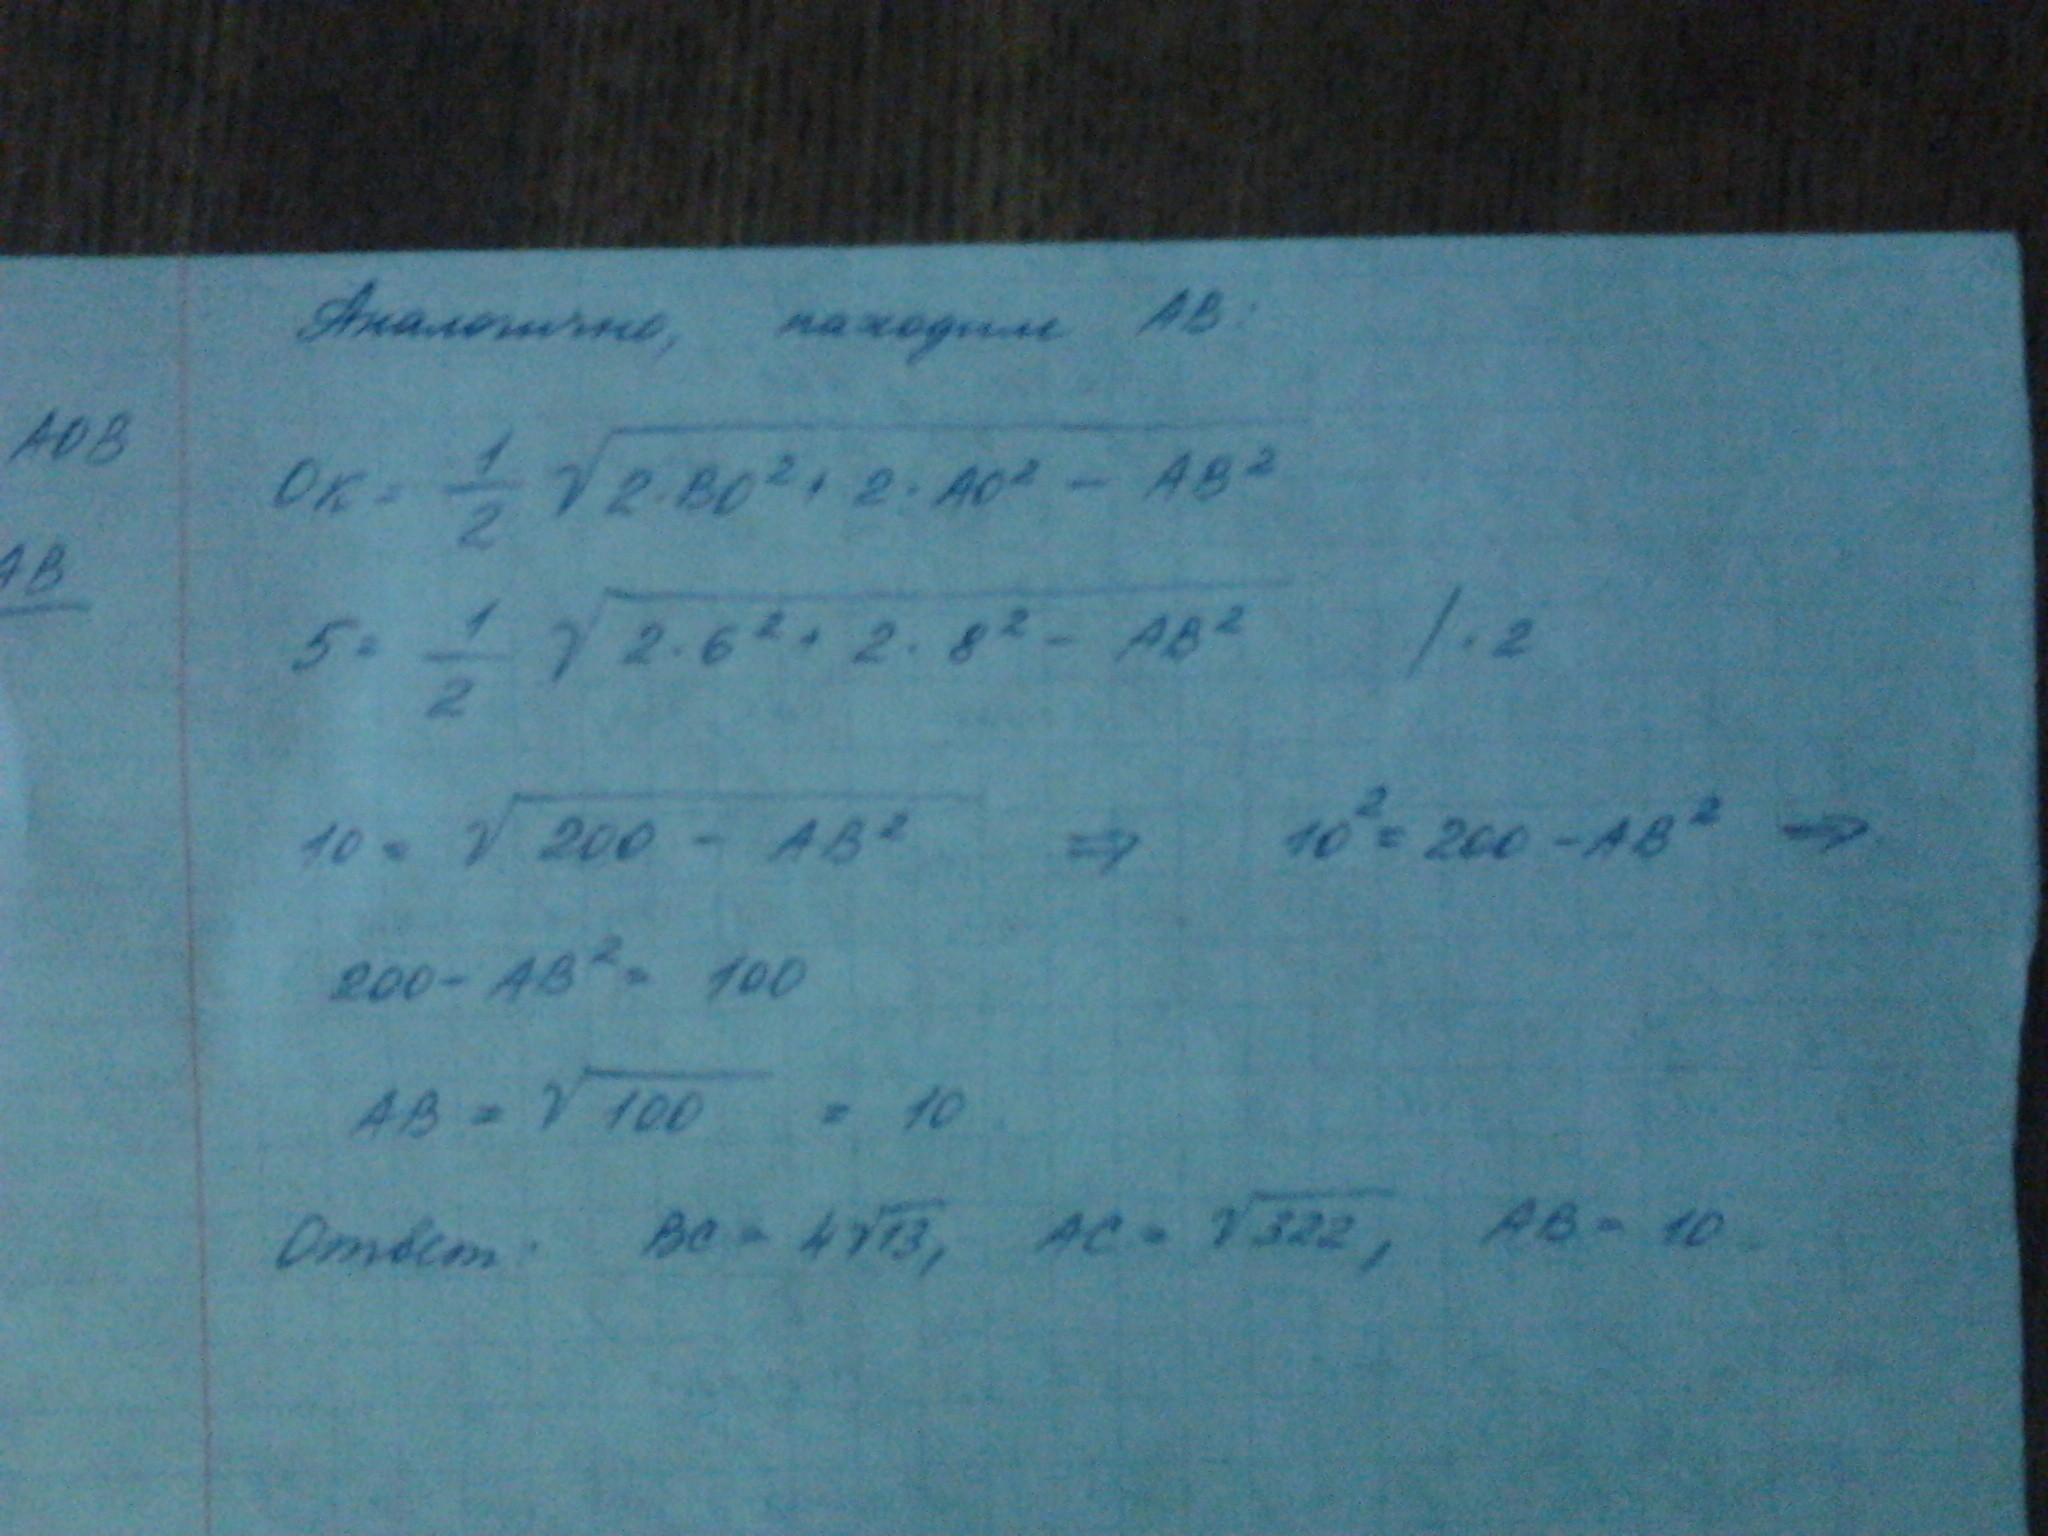 Аналогично, находим AB:
AOB
OK = 1/2 √(2·BO² + 2·AO² − AB²)
AB
5 = 1/2 √(2·6² + 2·8² − AB²) / ·2
10 = √(200 − AB²) ⇒ 10² = 200 − AB² ⇒
200 − AB² = 100
AB = √100 = 10
Ответ: BC = 4√13, AC = √322, AB = 10.